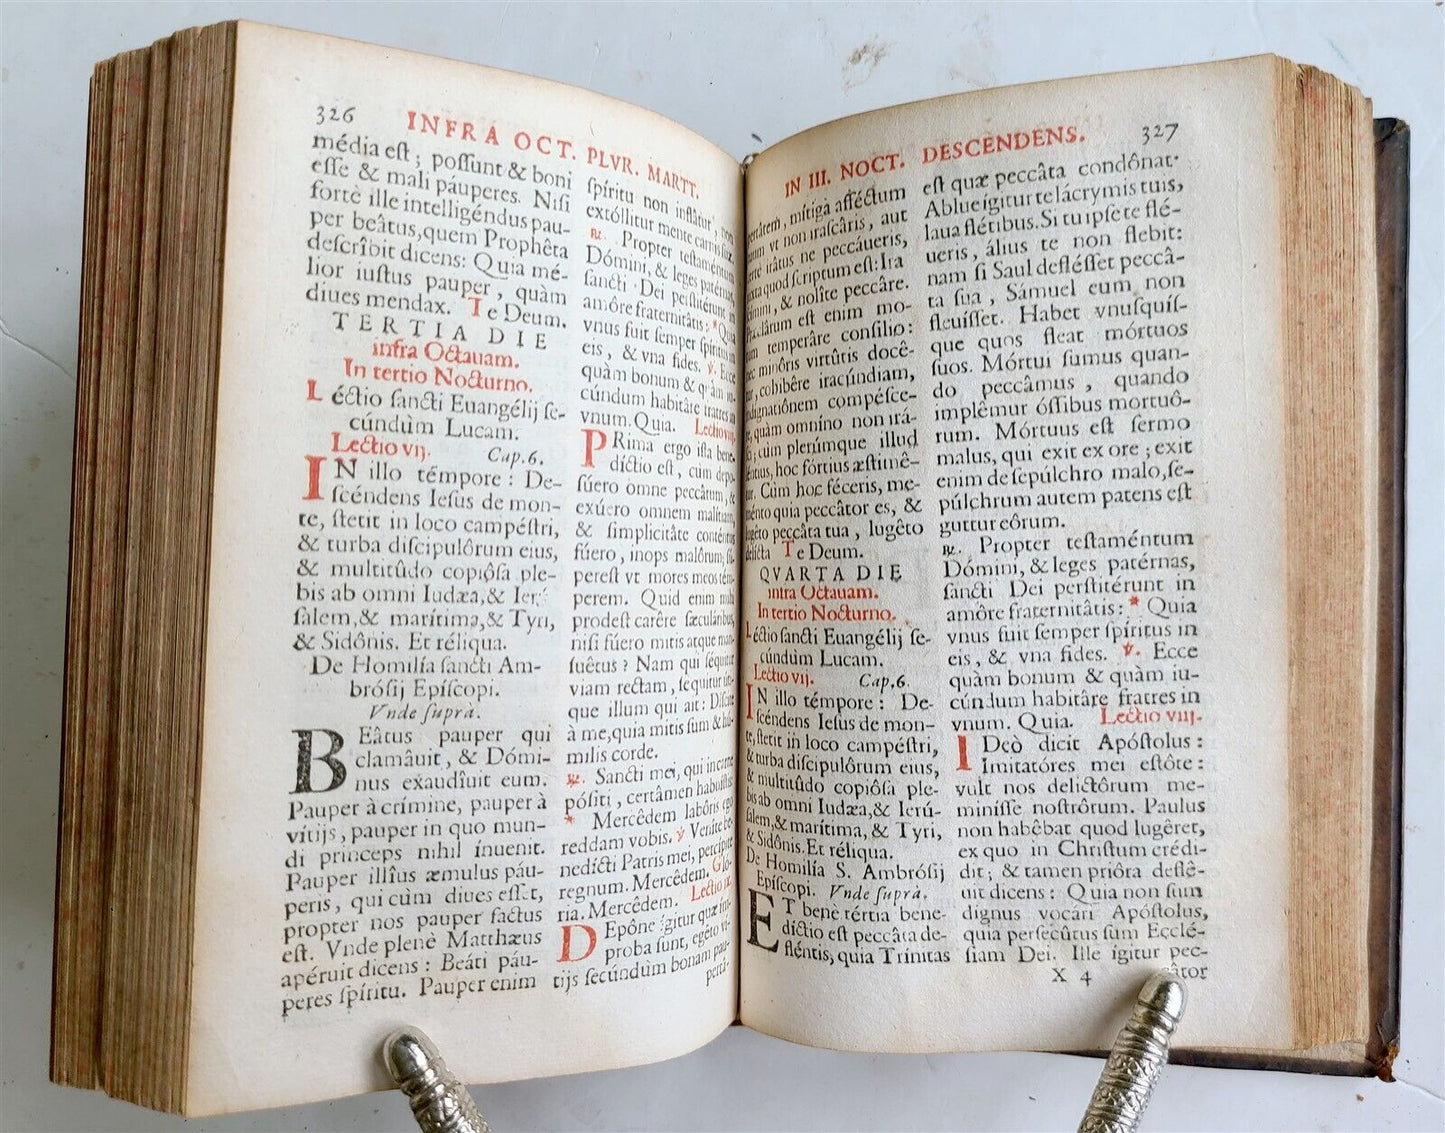 326 INFRA OCT. PLVR. MARTT.
média eſt; poſſunt & boni
eſſe & mali páuperes. Niſi
fortè ille intelligéndus pau-
per beâtus, quem Prophêta
deſcrîbit dicens: Quia mé-
lior iuſtus pauper, quàm
diues mendax. Te Deum.
TERTIA DIE
infra Octauam.
In tertio Nocturno.
Léctio ſancti Euangélij ſe-
cúndùm Lucam.
Lectio vij. Cap.6.
IN illo témpore: De-
ſcéndens Ieſus de mon-
te, ſtetit in loco campéſtri,
& turba diſcipulôrum eius,
& multitûdo copiôſa ple-
bis ab omni Iudæa, & Ierú-
ſalem, & marítima, & Tyri,
& Sidônis. Et réliqua.
De Homilía ſancti Am-
bróſij Epíſcopi.
Vnde ſuprà.
BEâtus pauper qui
clamâuit, & Dómi-
nus exaudîuit eum.
Pauper à crímine, pauper à
vítijs, pauper in quo mun-
di princeps nihil ínuenit.
Pauper illîus æmulus páu-
peris, qui cùm diues eſſet,
propter nos pauper factus
eſt. Vnde plenè Matthæus
apéruit dicens: Beáti páu-
peres ſpíritu. Pauper enim
ſpíritu non inflâtur, non
extóllitur mente carnis ſuæ.
℟. Propter teſtaméntum
Dómini, & leges patérnas,
ſancti Dei perſtitérunt in
amôre fraternitâtis: * Quia
vnus fuit ſemper ſpíritus in
eis, & vna fides. ℣. Ecce
quàm bonum & quàm iu-
cúndum habitâre fratres in
vnum. Quia. Lectio viij.
PRima ergo iſta bene-
díctio eſt, cùm depo-
ſúero omne peccâtum, &
exúero omnem malítiam,
& ſimplicitâte conténtus
fúero, inops malôrum; ſú-
pereſt vt mores meos tém-
perem. Quid enim mihi
prodeſt carêre ſæculáribus,
niſi fúero mitis atque man-
ſuêtus? Nam qui ſéquitur
viam rectam, ſequitur úti-
que illum qui ait: Díſcite
à me, quia mitis ſum & hú-
milis corde.
℟. Sancti mei, qui in carne
póſiti, certâmen habuíſtis
* Mercêdem labôris ego
reddam vobis. ℣. Venîte be-
nedícti Patris mei, percípite
regnum. Mercêdem. Gló-
ria. Mercêdem. Lectio ix.
DEpône ígitur quæ ím-
proba ſunt, egêto ví-
tijs ſecúndùm bonam pau-
pertâ-
IN III. NOCT. DESCENDENS. 327
pertâtem, mítiga afféctum
tuum vt non iraſcâris, aut
certè irâtus ne peccáueris,
iuxta quod ſcriptum eſt: Ira
ſcímini, & nolîte peccâre.
Præclârum eſt enim mo-
tum temperâre conſílio:
nec minôris virtûtis docê-
tur, cohibêre iracúndiam,
indignatiônem compéſce-
re, quàm omnîno non irá-
ſci; cùm plerúmque illud
léntius, hoc fórtius æſtimê-
tur. Cùm hoc féceris, me-
ménto quia peccâtor es, &
lugêto peccâta tua, lugêto
delícta Te Deum.
QVARTA DIE
intra Octauam.
In tertio Nocturno.
Léctio ſancti Euangélij ſe-
cúndùm Lucam.
Lectio vij. Cap.6.
IN illo témpore: De-
ſcéndens Ieſus de mon-
te, ſtetit in loco campéſtri,
& turba diſcipulôrum eius,
& multitûdo copiôſa ple-
bis ab omni Iudæa, & Ierú-
ſalem, & marítima, & Tyri,
& Sidônis. Et réliqua.
De Homilía S. Ambróſij
Epíſcopi. Vnde ſuprà.
ET benè tértia bene-
díctio eſt peccâta de-
fléntis, quia Trínitas
eſt quæ peccâta condônat.
Ablue ígitur te lácrymis tuis,
laua flétibus. Si tu ipſe te flé-
ueris, álius te non flebit:
nam ſi Saul defléſſet peccâ-
ta ſua, Sámuel eum non
fleuíſſet. Habet vnuſquíſ-
que quos fleat mórtuos
ſuos. Mórtui ſumus quan-
do peccâmus, quando
implêmur óſſibus mortuô-
rum. Mórtuus eſt ſermo
malus, qui exit ex ore; exit
enim de ſepúlchro malo, ſe-
púlchrum autem patens eſt
guttur eôrum.
℟. Propter teſtaméntum
Dómini, & leges patérnas,
ſancti Dei perſtitérunt in
amôre fraternitâtis: * Quia
vnus fuit ſemper ſpíritus in
eis, & vna fides. ℣. Ecce
quàm bonum & quàm iu-
cúndum habitâre fratres in
vnum. Quia. Lectio viij.
IDeò dicit Apóſtolus:
Imitatóres mei eſtôte:
vult nos delictórum me-
miníſſe noſtrôrum. Paulus
non habêbat quod lugêret,
ex quo in Chriſtum crédi-
dit; & tamen priôra deflê-
uit dicens: Quia non ſum
dignus vocári Apóſtolus,
quia perſecûtus ſum Eccléſ-
ſiam Dei. Ille ígitur pec-
X 4 câtor